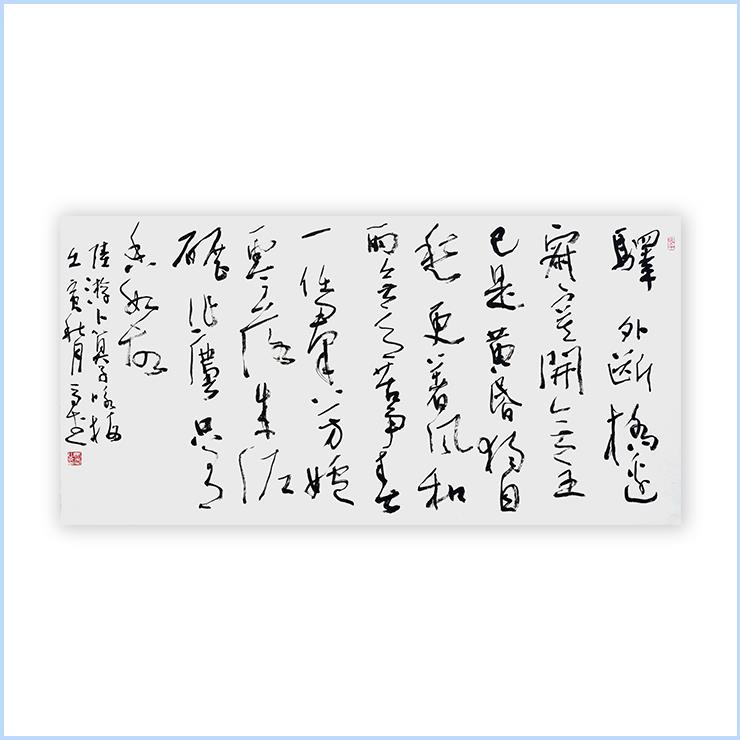 驛外斷橋邊
寂寞開無主
已是黃昏獨自
愁更著風和
雨無意苦爭春
一任群芳妒
零落成泥
碾作塵只有
香如故
陸游卜算子咏梅
壬寅秋月